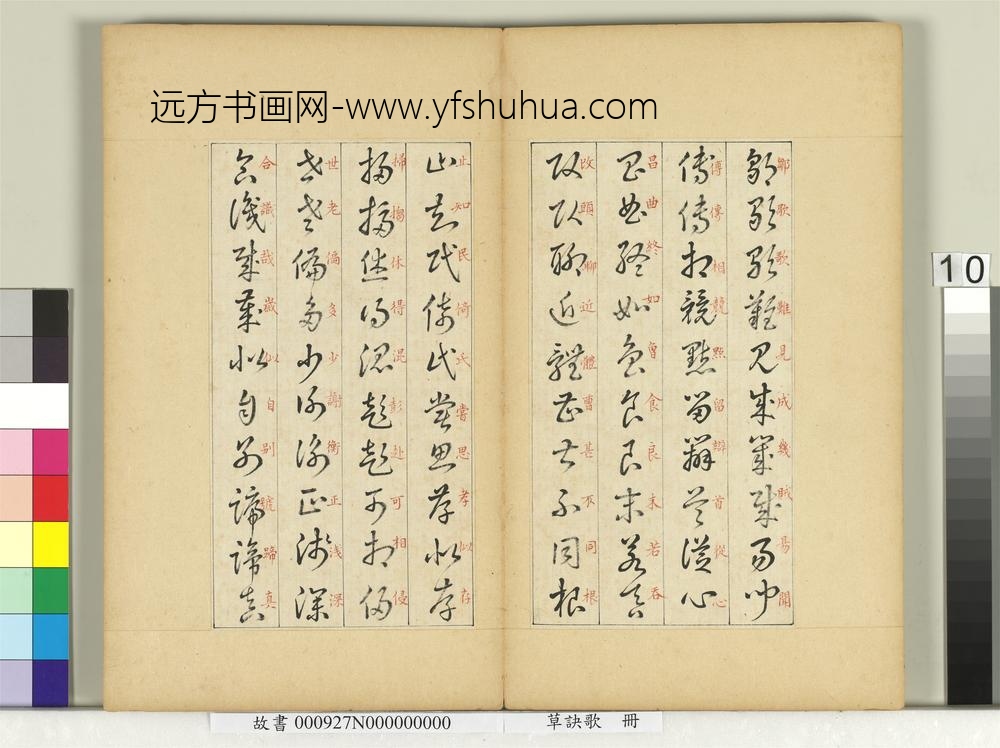 远方书画网-www.yfshuhua.com
鄒歇歌難見成幾賊易聞
傅傳相競點留辯首從心
昌曲終如魯食良末若吞
改頭聊近體曹甚不同根
止知民倚氏嘗思孝似存
掃搊休得混彭赴可相侵
世老偏多少謝衡正淺深
合識哉歲似自别號蹄真
10
故書 000927N000000000
草訣歌 冊